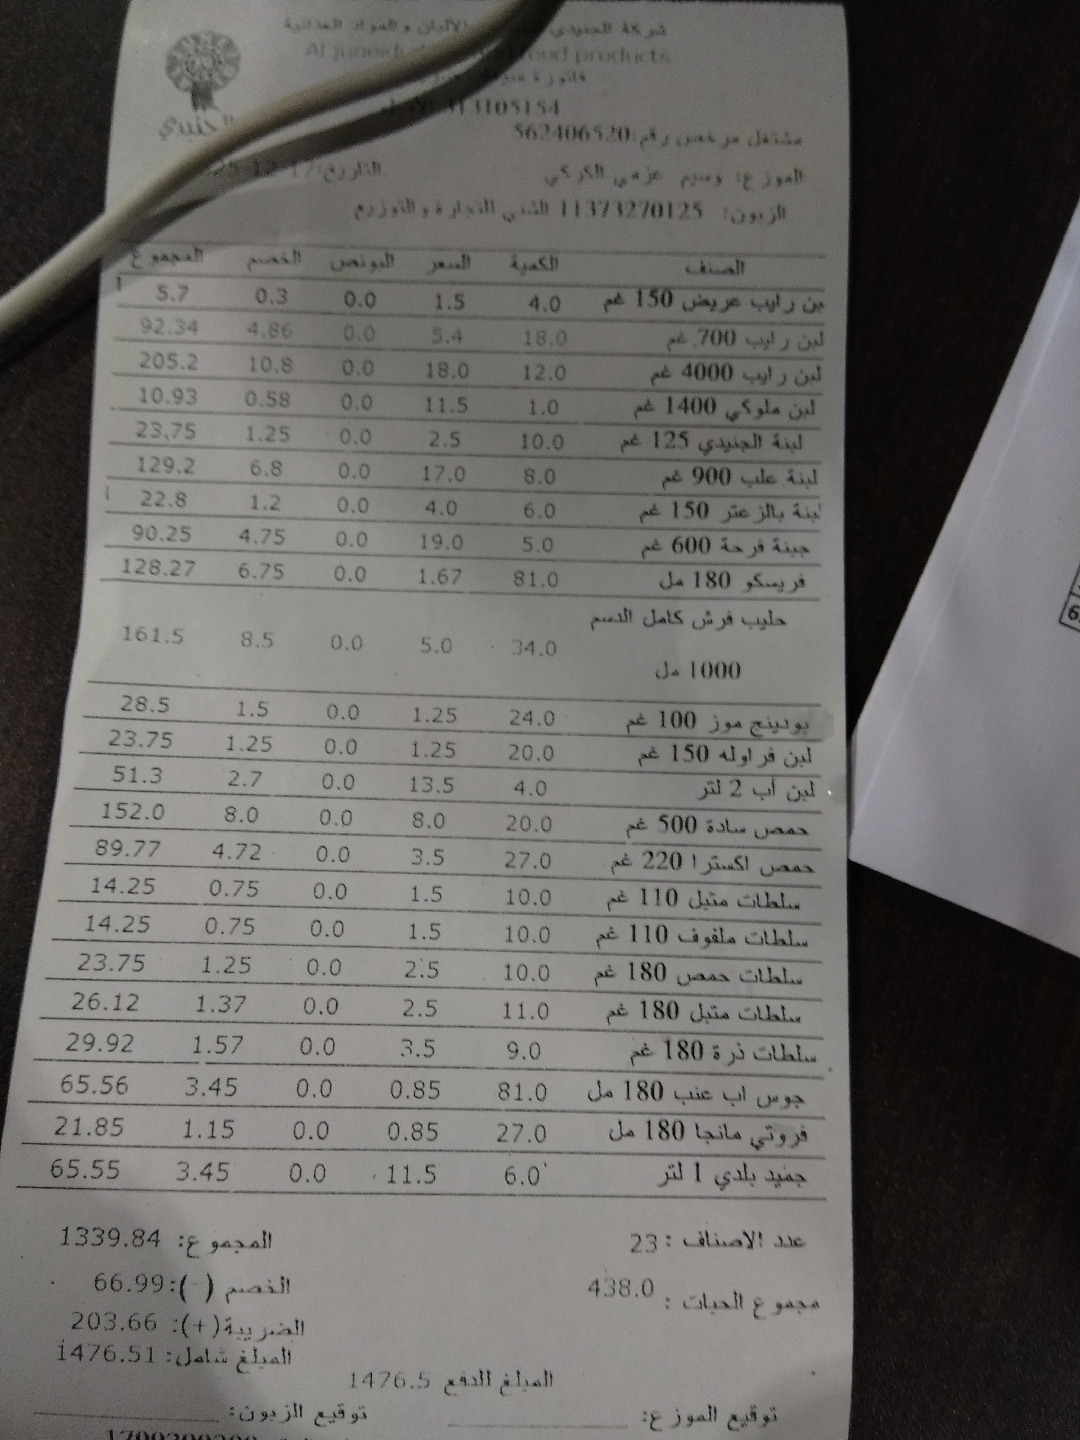 شركة الجنيدي الألبان و المواد الغذائية
Al juneidi food products
فاتورة
313105154
مشتغل مرخص رقم:562406520
الموزع: وسيم عزمي الكركي التاريخ:17-12-
الزبون: 11373270125 الشني للتجارة والتوزيع
الصنف الكمية السعر البونص الخصم المجموع
بن رايب عريض 150 غم 4.0 1.5 0.0 0.3 5.7
لبن رايب 700 غم 18.0 5.4 0.0 4.86 92.34
لبن رايب 4000 غم 12.0 18.0 0.0 10.8 205.2
لبن ملوكي 1400 غم 1.0 11.5 0.0 0.58 10.93
لبنة الجنيدي 125 غم 10.0 2.5 0.0 1.25 23.75
لبنة علب 900 غم 8.0 17.0 0.0 6.8 129.2
لبنة بالزعتر 150 غم 6.0 4.0 0.0 1.2 22.8
جبنة فرحة 600 غم 5.0 19.0 0.0 4.75 90.25
فريسكو 180 مل 81.0 1.67 0.0 6.75 128.27
حليب فرش كامل الدسم
1000 مل 34.0 5.0 0.0 8.5 161.5
بودينج موز 100 غم 24.0 1.25 0.0 1.5 28.5
لبن فراوله 150 غم 20.0 1.25 0.0 1.25 23.75
لبن أب 2 لتر 4.0 13.5 0.0 2.7 51.3
حمص سادة 500 غم 20.0 8.0 0.0 8.0 152.0
حمص اكسترا 220 غم 27.0 3.5 0.0 4.72 89.77
سلطات متبل 110 غم 10.0 1.5 0.0 0.75 14.25
سلطات ملفوف 110 غم 10.0 1.5 0.0 0.75 14.25
سلطات حمص 180 غم 10.0 2.5 0.0 1.25 23.75
سلطات متبل 180 غم 11.0 2.5 0.0 1.37 26.12
سلطات ذرة 180 غم 9.0 3.5 0.0 1.57 29.92
جوس اب عنب 180 مل 81.0 0.85 0.0 3.45 65.56
فروتي مانجا 180 مل 27.0 0.85 0.0 1.15 21.85
جميد بلدي 1 لتر 6.0 11.5 0.0 3.45 65.55
عدد الاصناف : 23 المجموع: 1339.84
مجموع الحبات : 438.0 الخصم (-):66.99
الضريبة(+): 203.66
المبلغ شامل: 1476.51
المبلغ للدفع 1476.5
توقيع الموزع: توقيع الزبون: